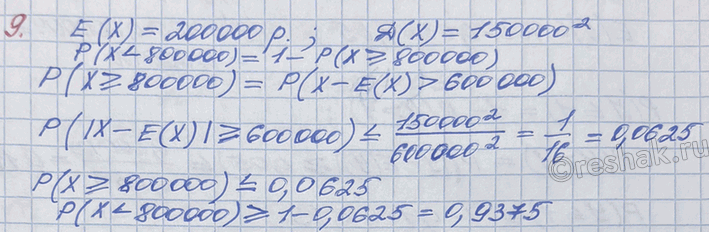 9. E(X) = 200000 р.; D(X) = 150000²
P(X < 800000) = 1 - P(X ≥ 800000)
P(X ≥ 800000) = P(X - E(X) > 600000)
P(|X - E(X)| ≥ 600000) ≤ 150000²/600000² = 1/16 = 0,0625
P(X ≥ 800000) ≤ 0,0625
P(X < 800000) ≥ 1 - 0,0625 = 0,9375
©reshak.ru